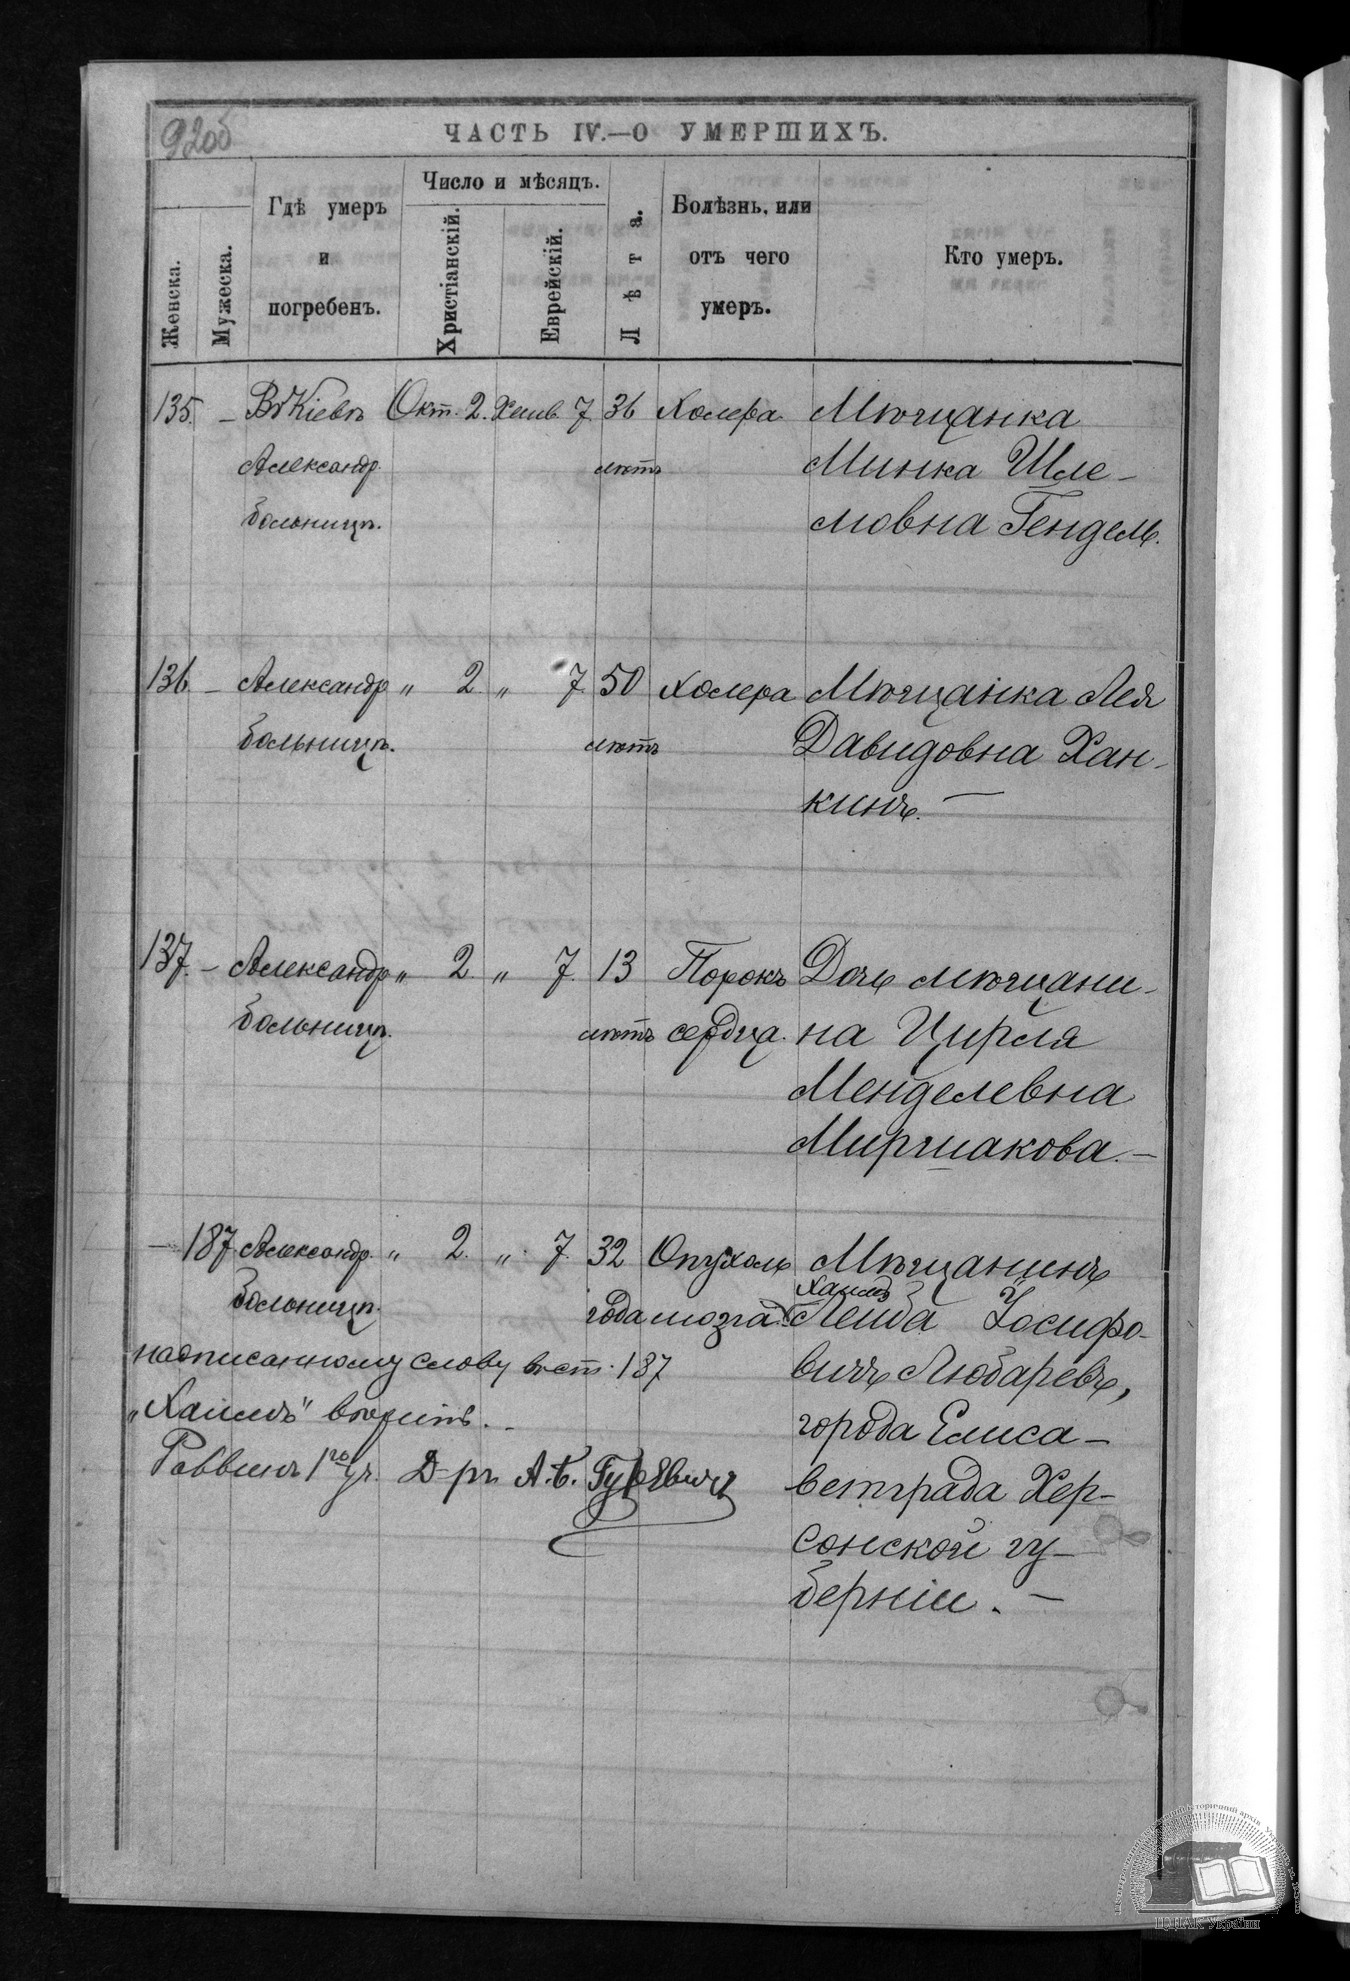 92об
ЧАСТЬ IV.—О УМЕРШИХЪ.
Женска.
Мужеска.
Гдѣ умеръ
и
погребенъ.
Число и мѣсяцъ.
Христіанскій.
Еврейскій.
Лѣта.
Болѣзнь, или
отъ чего
умеръ.
Кто умеръ.
135. – Въ Кіевѣ Окт. 2. Хешв. 7. 36 Холера Мѣщанка
Александр. лѣтъ Минка Шле-
больницѣ. мовна Гендель.
136 – Александр. „ 2 „ 7. 50 Холера Мѣщанка Лея
больницѣ. лѣтъ Давидовна Хан-
кинъ. —
137. – Александр. „ 2. „ 7. 13 Порокъ Дочь мѣщани-
больницѣ. лѣтъ сердца. на Цирля
Менделевна
Миршакова. —
– 187. Александр. „ 2. „ 7. 32 Опухоль Мѣщанинъ
Хаимъ
больницѣ. года мозга. Лейба Іосифо-
надписанному слову въ ст. 187 вичъ Любаревъ,
„Хаимъ" вѣрить. – города Елиса-
Раввинъ 1го уч. Д-ръ А. Б. Гуревичъ ветграда Хер-
сонской гу-
берніи. —
ЦДІАК України